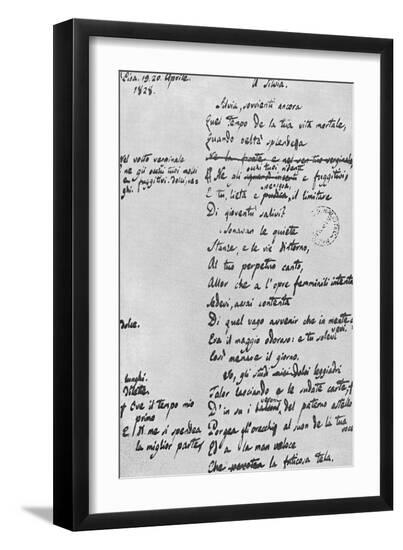 Pisa. 19. 20. Aprile.
1828.
A Silvia.
Silvia, sovvienti ancora
Quel tempo de la tua vita mortale,
Quando beltà splendea
Ne la fronte e nel sen tuo verginale,
Nel volto verginale
E ne gli occhi tuoi molli
e fuggitivi,
occhi tuoi ridenti
Ne gli e fuggitivi,
pensosa,
E tu, lieta e pudica, il limitare
Di gioventù salivi?
Sonavan le quiete
Stanze, e le vie dintorno,
Al tuo perpetuo canto,
Allor che a l'opre femminili intenta
Sedevi, assai contenta
dolce.
Di quel vago avvenir che in mente
avevi.
Era il maggio odoroso: e tu solevi
Così menare il giorno.
Io, gli studi miei dolci leggiadri
lunghi.
Dilette.
Talor lasciando e le sudate carte,
Ove il tempo mio
primo
E di me si spendea
la miglior parte,
D'in su i del paterno ostello
Porgea gli orecchi al suon de la tua
voce
Ed a la man veloce
Che percorrea la faticosa tela.